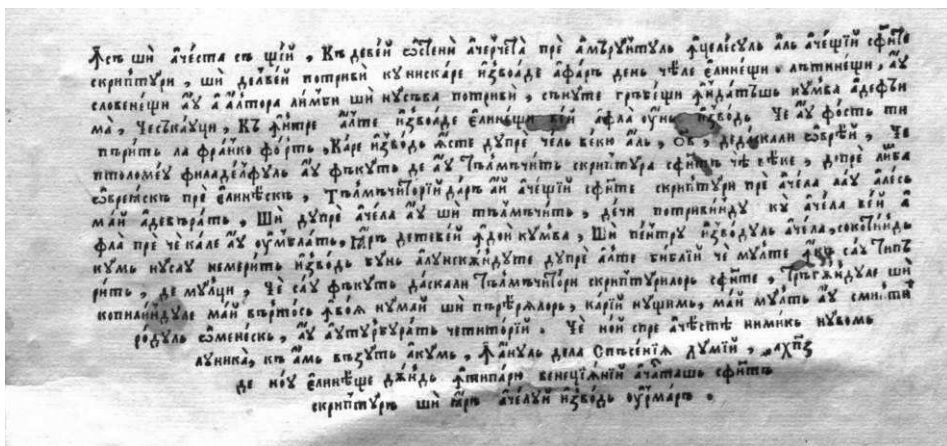 Ꙟсъ шѝ а҆чѣста съ щїй , Къ девѐй ѡ҆стенѝ а҆черчета̀ прѐ а҆мъру́нтуль ꙟцеле́суль а҆ль а҆че́щїй сфи́нте
скрипту́ри , шѝ де́лвей потривѝ ку нискаре и҆зво́аде а҆фа́ръ день чѣле е҆лине́щи . лътине́щи , а҆у
словене́щи а҆у а҆ а҆́лтора ли́мби шѝ нусъва потривѝ , сънуте гръбе́щи ꙟда́тъшь ку́мва а҆дефъи
мà , Чесъка́уци , Къ ꙟ́нтре а҆́лте и҆зво́аде е҆лине́щи вей а҆фла̀ ᲂу҆нь и҆зво́дь Че а҆у фо́сть ти
пъри́ть ла фра́нко фо́рть , Ка́ре и҆зво́дь ꙗ҆́сте ду́пре чель ве́кю а҆ль , ѻ҃в , деда́скали ѡ҆вре́и , Че
птоломе́у филаде́лфуль а҆у фъку́ть де а҆у тълмъчи́ть скрипту́ра сфи́нтъ чѣ вѣ́ке , депре ли́мба
ѡ҆вреꙗ́скъ прѐ е҆линѣ́скъ , Тълмъчито́рїй да́ръ а҆́й а҆че́щїй сфи́нте скрипту́ри прѐ а҆че́ла ла́у а҆ле́сь
май а҆девъра́ть , Шѝ ду́пре а҆че́ла а҆у шѝ тълмъчи́ть , де́чи потриви́нду кꙋ а҆че́ла вей а҆
фла̀ пре чѣ ка́ле а҆у ᲂу҆мбла́ть , Ꙗ҆ръ детеве́й ꙟдоѝ ку́мва , Шѝ пе́нтру и҆зво́дуль а҆че́ла , сокоти́ндь
кумь нусау немери́ть и҆зво́дь бунь алунскжндуте ду́пре а҆́лте би́блїй че му́лте сау типъ
ри́ть , де му́лци , Че са́у фъку́ть да́скали тълмъчито́ри скрипту́рилорь сфи́нте , тръгжндуле шѝ
копилїи́ндуле май въ́ртось ꙟвоѧ нума́й шѝ пъре́рѧлорь , ка́рїй нущимь , май мулть а҆у сми́нтить
ро́дуль ѡ҆мене́скь , а҆у а҆у турбура́ть четито́рїй . Че но́й спре а҆чѣ́стѣ нимикь нувомь
луника̀ , къ а҆мь възу́ть аку́мь , Ꙟ а҆́нуль дела Спъсе́нїѧ лу́мїй , ҂ахп҃з
де но́у е҆линѣ́ще да́ндь ꙟтипа́рю вене́цїѧнїй а҆ча́сташь сфи́нтъ
скрипту́ръ шѝ ꙗ҆ръ а҆че́луй и҆зво́дь ᲂу҆рма́ръ .